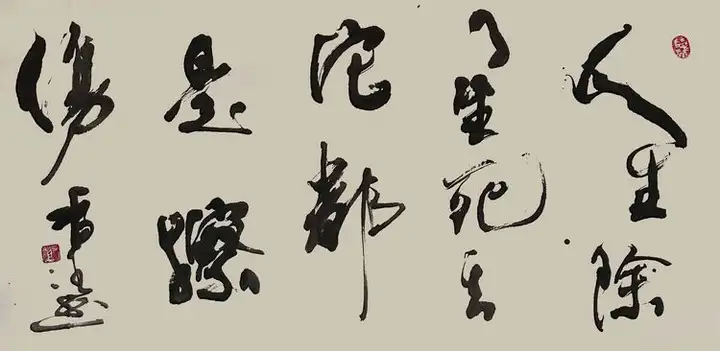 人生除
了生死其
佗都
是擦
傷